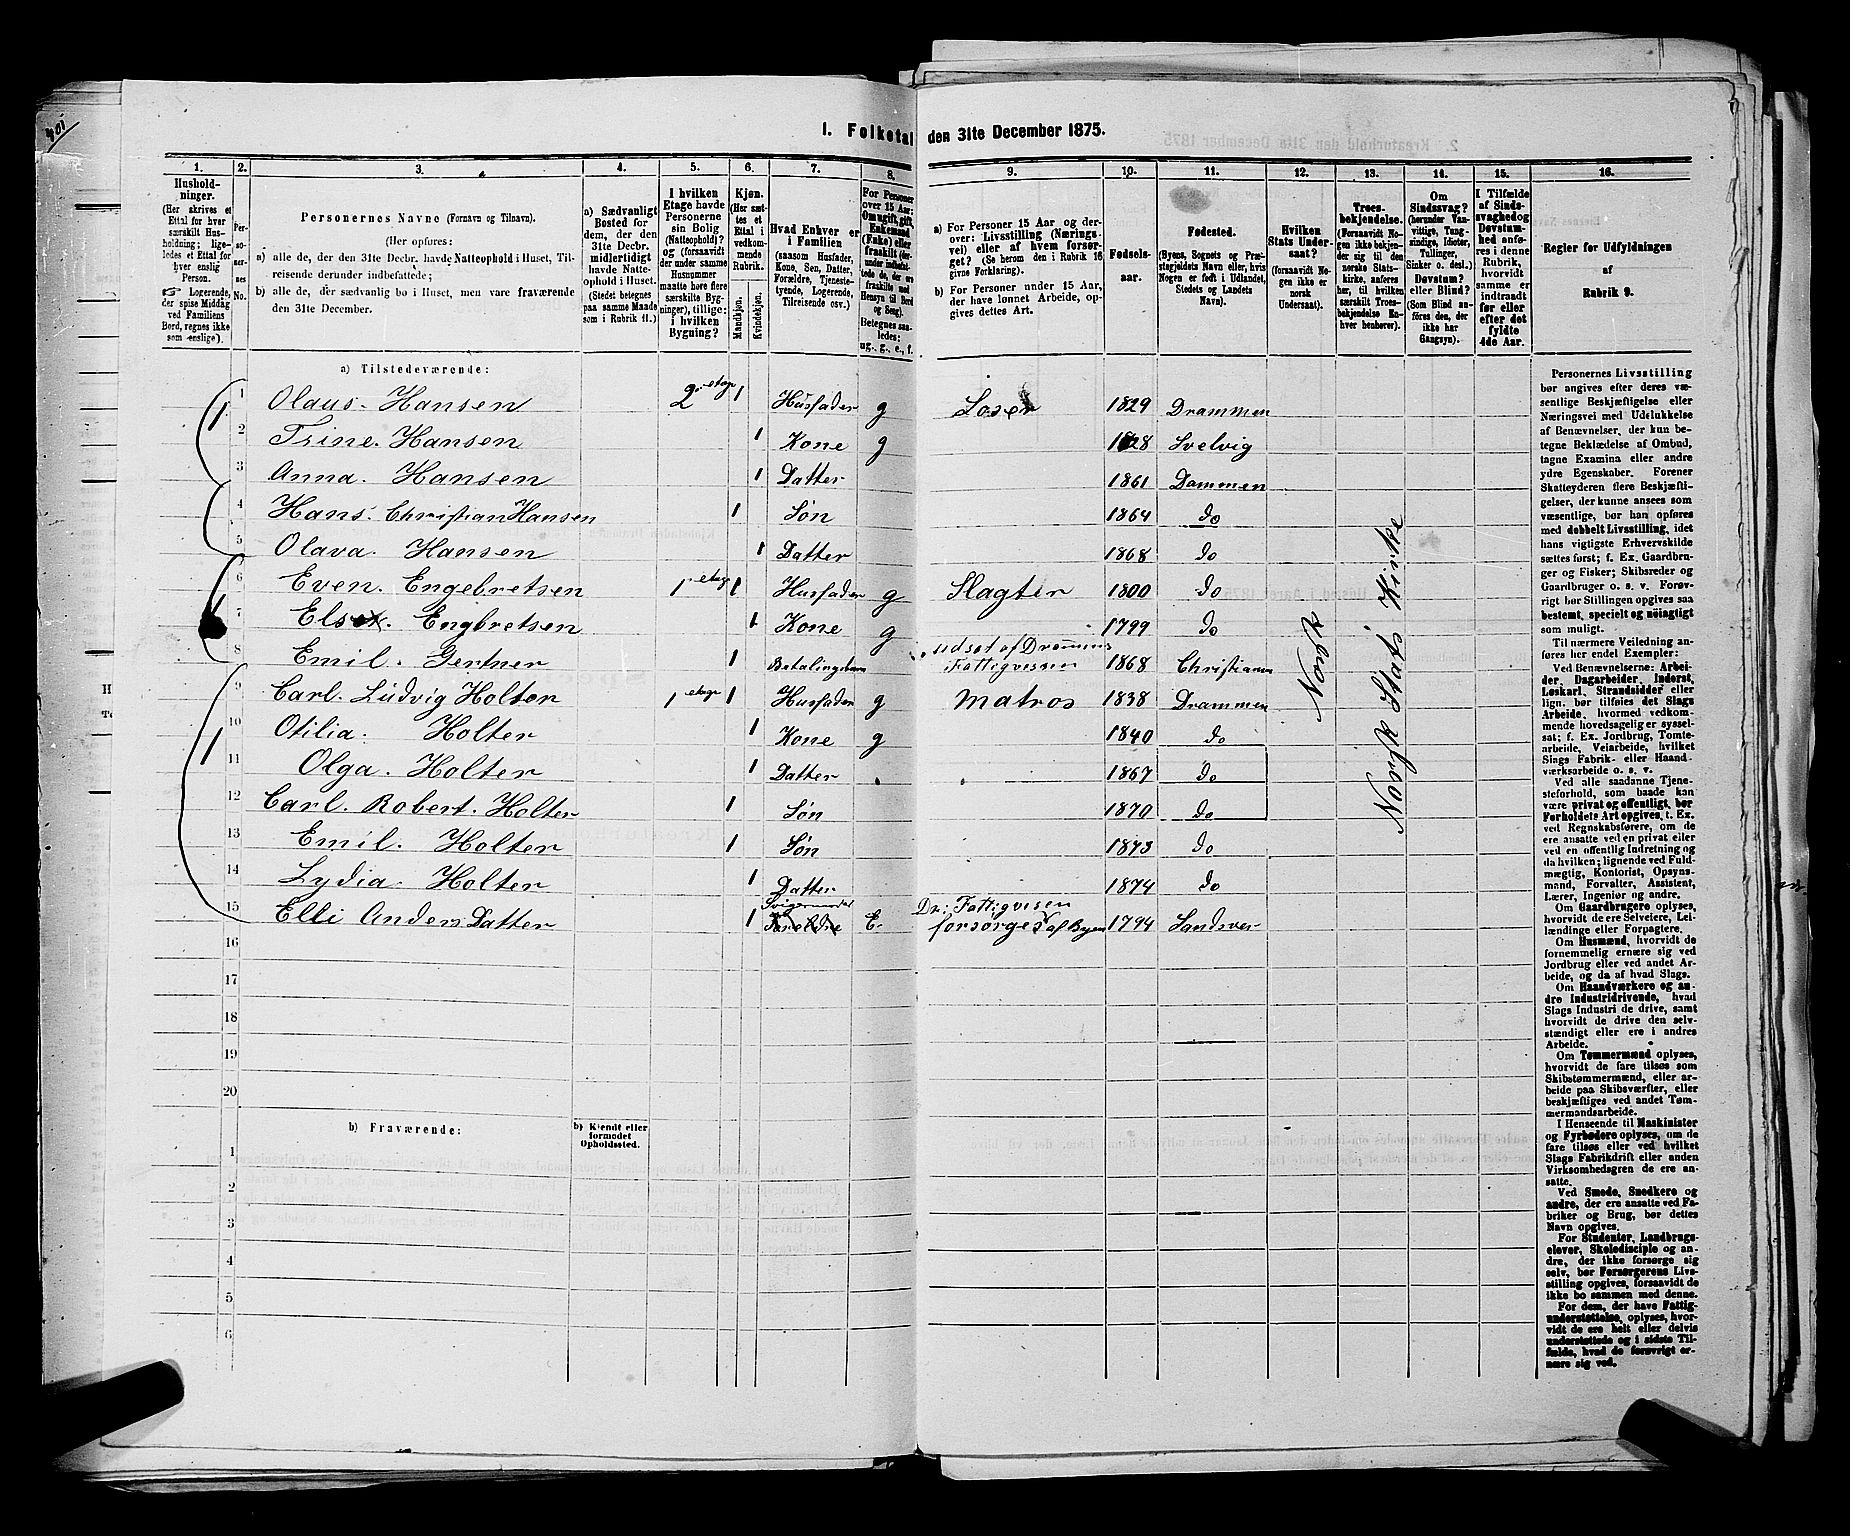 401
I. Folketal den 31te December 1875.
1. 2. 3. 4. 5. 6. 7. 8. 9. 10. 11. 12. 13. 14. 15. 16.
Husholdninger. (Her skrives et Ettal for hver særskilt Husholdning; ligeledes et Ettal for hver enslig Person. ☞ Logerende, der spise Middag ved Familiens Bord, regnes ikke som enslige).
Personernes No.
Personernes Navne (Fornavn og Tilnavn).
(Her opføres:
a) alle de, der den 31te Decbr. havde Natteophold i Huset, Tilreisende derunder indbefattede;
b) alle de, der sædvanlig bo i Huset, men vare fraværende den 31te December.
a) Sædvanligt Bosted for dem, der den 31te Decbr. midlertidigt havde Natteophold i Huset. (Stedet betegnes paa samme Maade som i Rubrik 11.)
I hvilken Etage havde Personerne sin Bolig (Natteophold)? og (forsaavidt der under samme Husnummer maatte høre flere særskilte Bygninger), tillige: i hvilken Bygning?
Kjøn. (Her sættes et Ettal i vedkommende Rubrik.
Mandkjøn. Kvindekjøn.
Hvad Enhver er i Familien (saasom Husfader, Kone, Søn, Datter, Forældre, Tjenestetyende, Logerende, Tilreisende osv.)
For Personer over 15 Aar: Om ugift, gift, Enkemand (Enke) eller fraskilt Betegnes saaledes: ug., g., e., f.
a) For Personer 15 Aar og derover: Livsstilling (Næringsvei) eller af hvem forsørget? (Se herom den i Rubrik 16 givne Forklaring).
b) For Personer under 15 Aar, der have lønnet Arbeide, opgives dettes Art.
Fødselsaar.
Fødested. (Byens, Sognets og Præstegjeldets Navn eller, hvis Nogen er født i Udlandet, Stedets og Landets Navn).
Hvilken Stats Undersaat? (forsaavidt Nogen ikke er norsk Undersaat).
Troesbekjendelse. (Forsaavidt Nogen ikke bekjender sig til den norske Statskirke, anføres her, til hvilken særskilt Troesbekjendelse Enhver henhører).
Om Sindssvag? (herunder Vanvittige, Tungsindige, Idioter, Tullinger, Sinker o. desl.) Døvstum? eller Blind? (Som Blind anføres den, der ikke har Gangsyn).
I Tilfælde af Sindssvaghed og Døvstumhed anføres i denne Rubrik, hvorvidt samme er indtraadt før eller efter det fyldte 4de Aar.
Regler for Udfyldningen af Rubrik 9.
a) Tilstedeværende:
1 Olaus. Hansen 2 etage 1 Husfader g 1829 Drammen
2 Trine. Hansen 1 Kone g 1828 Svelvig
3 Anna. Hansen 1 Datter 1861 Dammen
4 Hans. Christian Hansen 1 Søn 1864 do
5 Olava. Hansen 1 Datter 1868 do
6 Even. Engebretsen 1 etage 1 Husfader g Slagter 1800 do
7 Else. Engbretsen 1 Kone g 1799 do
8 Emil. Gertner 1 Betalingsbarn udsat af Drammens Fattigvessen 1868 Christiania
9 Carl. Ludvig Holter 1 etage 1 Husfader g Matros 1838 Drammen
10 Otilia. Holter 1 Kone g 1840 do
11 Olga. Holter 1 Datter 1867 do
12 Carl. Robert. Holter 1 Søn 1870 do
13 Emil. Holter 1 Søn 1873 do
14 Lydia. Holter 1 Datter 1874 do
15 Elli Anders Datter 1 Svigermoder Foreldre E. Dr: Fattigvesen forsørges af Byen 1794 Sandsver
Norsk
Norsk Stats Kirke
16
17
18
19
20
b) Fraværende:
b) Kjendt eller formodet Opholdssted.
1
2
3
4
5
6
Personernes Livsstilling
bør angives efter deres væ-
sentlige Beskjæftigelse eller
Næringsvei med Udelukkelse
af Benævnelser, der kun be-
tegne Beklædelse af Ombud,
tagne Examina eller andre
ydre Egenskaber. Forener
Skatteyderen flere Beskjæfti-
gelser, der kunne ansees som
væsentlige, bør han opføres
med dobbelt Livsstilling, idet
hans vigtigste Erhvervskilde
sættes først; f. Ex. Gaardbru-
ger og Fisker; Skibsreder og
Gaardbruger o. s. v. Forøv-
rigt bør Stillingen opgives saa
bestemt, specielt og nöiagtigt
som muligt.
Til nærmere Veiledning an-
føres her endel Exempler:
Ved Benævnelserne: Arbei-
der, Dagarbeider, Inderst,
Løskarl, Strandsidder eller
lign. bør tilføies det Slags
Arbeide, hvormed vedkom-
mende hovedsagelig er syssel-
sat; f. Ex. Jordbrug, Tomte-
arbeide, Veiarbeide, hvilket
Slags Fabrik- eller Haand-
værksarbeide o. s. v.
Ved alle saadanne Tjene-
steforhold, som baade kan
være privat og offentligt, bør
Forholdets Art opgives, t. Ex.
ved Regnskabsførere, om de
ere ansatte ved en privat eller
ved en offentlig Indretning og
da hvilken; lignende ved Fuld-
mægtig, Kontorist, Opsyns-
mand, Forvalter, Assistent,
Lærer, Ingeniør og andre.
Om Gaardbrugere oplyses,
hvorvidt de ere Selveiere, Lei-
lændinge eller Forpagtere.
Om Husmænd, hvorvidt de
fornemmelig ernære sig ved
Jordbrug eller ved andet Ar-
beide, og da af hvad Slags.
Om Haandværkere og an-
dre Industridrivende, hvad
Slags Industri de drive, samt
hvorvidt de drive den selv-
stændigt eller ere i andres
Arbeide.
Om Tømmermænd oplyses,
hvorvidt de fare tilsøs som
Skibstømmermænd, eller ar-
beide paa Skibsværfter, eller
beskjæftiges ved andet Tøm-
mermandsarbeide.
I Henseende til Maskinister
og Fyrbødere oplyses, om de
fare tilsøs eller ved hvilket
Slags Fabrikdrift eller anden
Virksomhedsgren de ere an-
satte.
Ved Smede, Snedkere og
andre, der ere ansatte ved Fa-
briker og Brug, bør dettes
Navn opgives.
For Studenter, Landbrugs-
elever, Skoledisciple og an-
dre, der ikke forsørge sig
selv, bør Forsørgerens Livs-
stilling opgives, forsaavidt de
ikke bo sammen med denne.
For dem, der have Fattig-
understøttelse, oplyses, hvor-
vidt de ere helt eller delvis
understøttede og i sidste Til-
fælde, hvad de forøvrigt er-
nære sig ved.